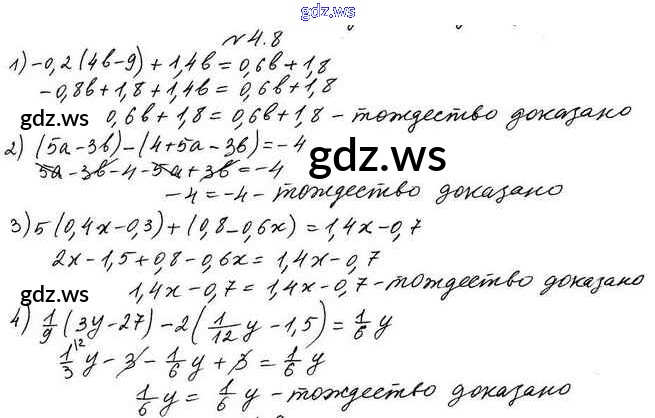 gdz.ws
№4.8
1) -0,2(4в-9)+1,4в=0,6в+1,8
-0,8в+1,8+1,4в=0,6в+1,8
0,6в+1,8=0,6в+1,8 - тождество доказано
gdz.ws
2) (5а-3в)-(4+5а-3в)=-4
5а-3в-4-5а+3в=-4
gdz.ws
-4=-4 - тождество доказано
3) 5(0,4х-0,3)+(0,8-0,6х)=1,4х-0,7
2х-1,5+0,8-0,6х=1,4х-0,7
1,4х-0,7=1,4х-0,7 - тождество доказано
gdz.ws
4) 1/9(3у-27)-2(1/12у-1,5)=1/6у
1/3\2у-3-1/6у+3=1/6у
1/6у=1/6у - тождество доказано
gdz.ws